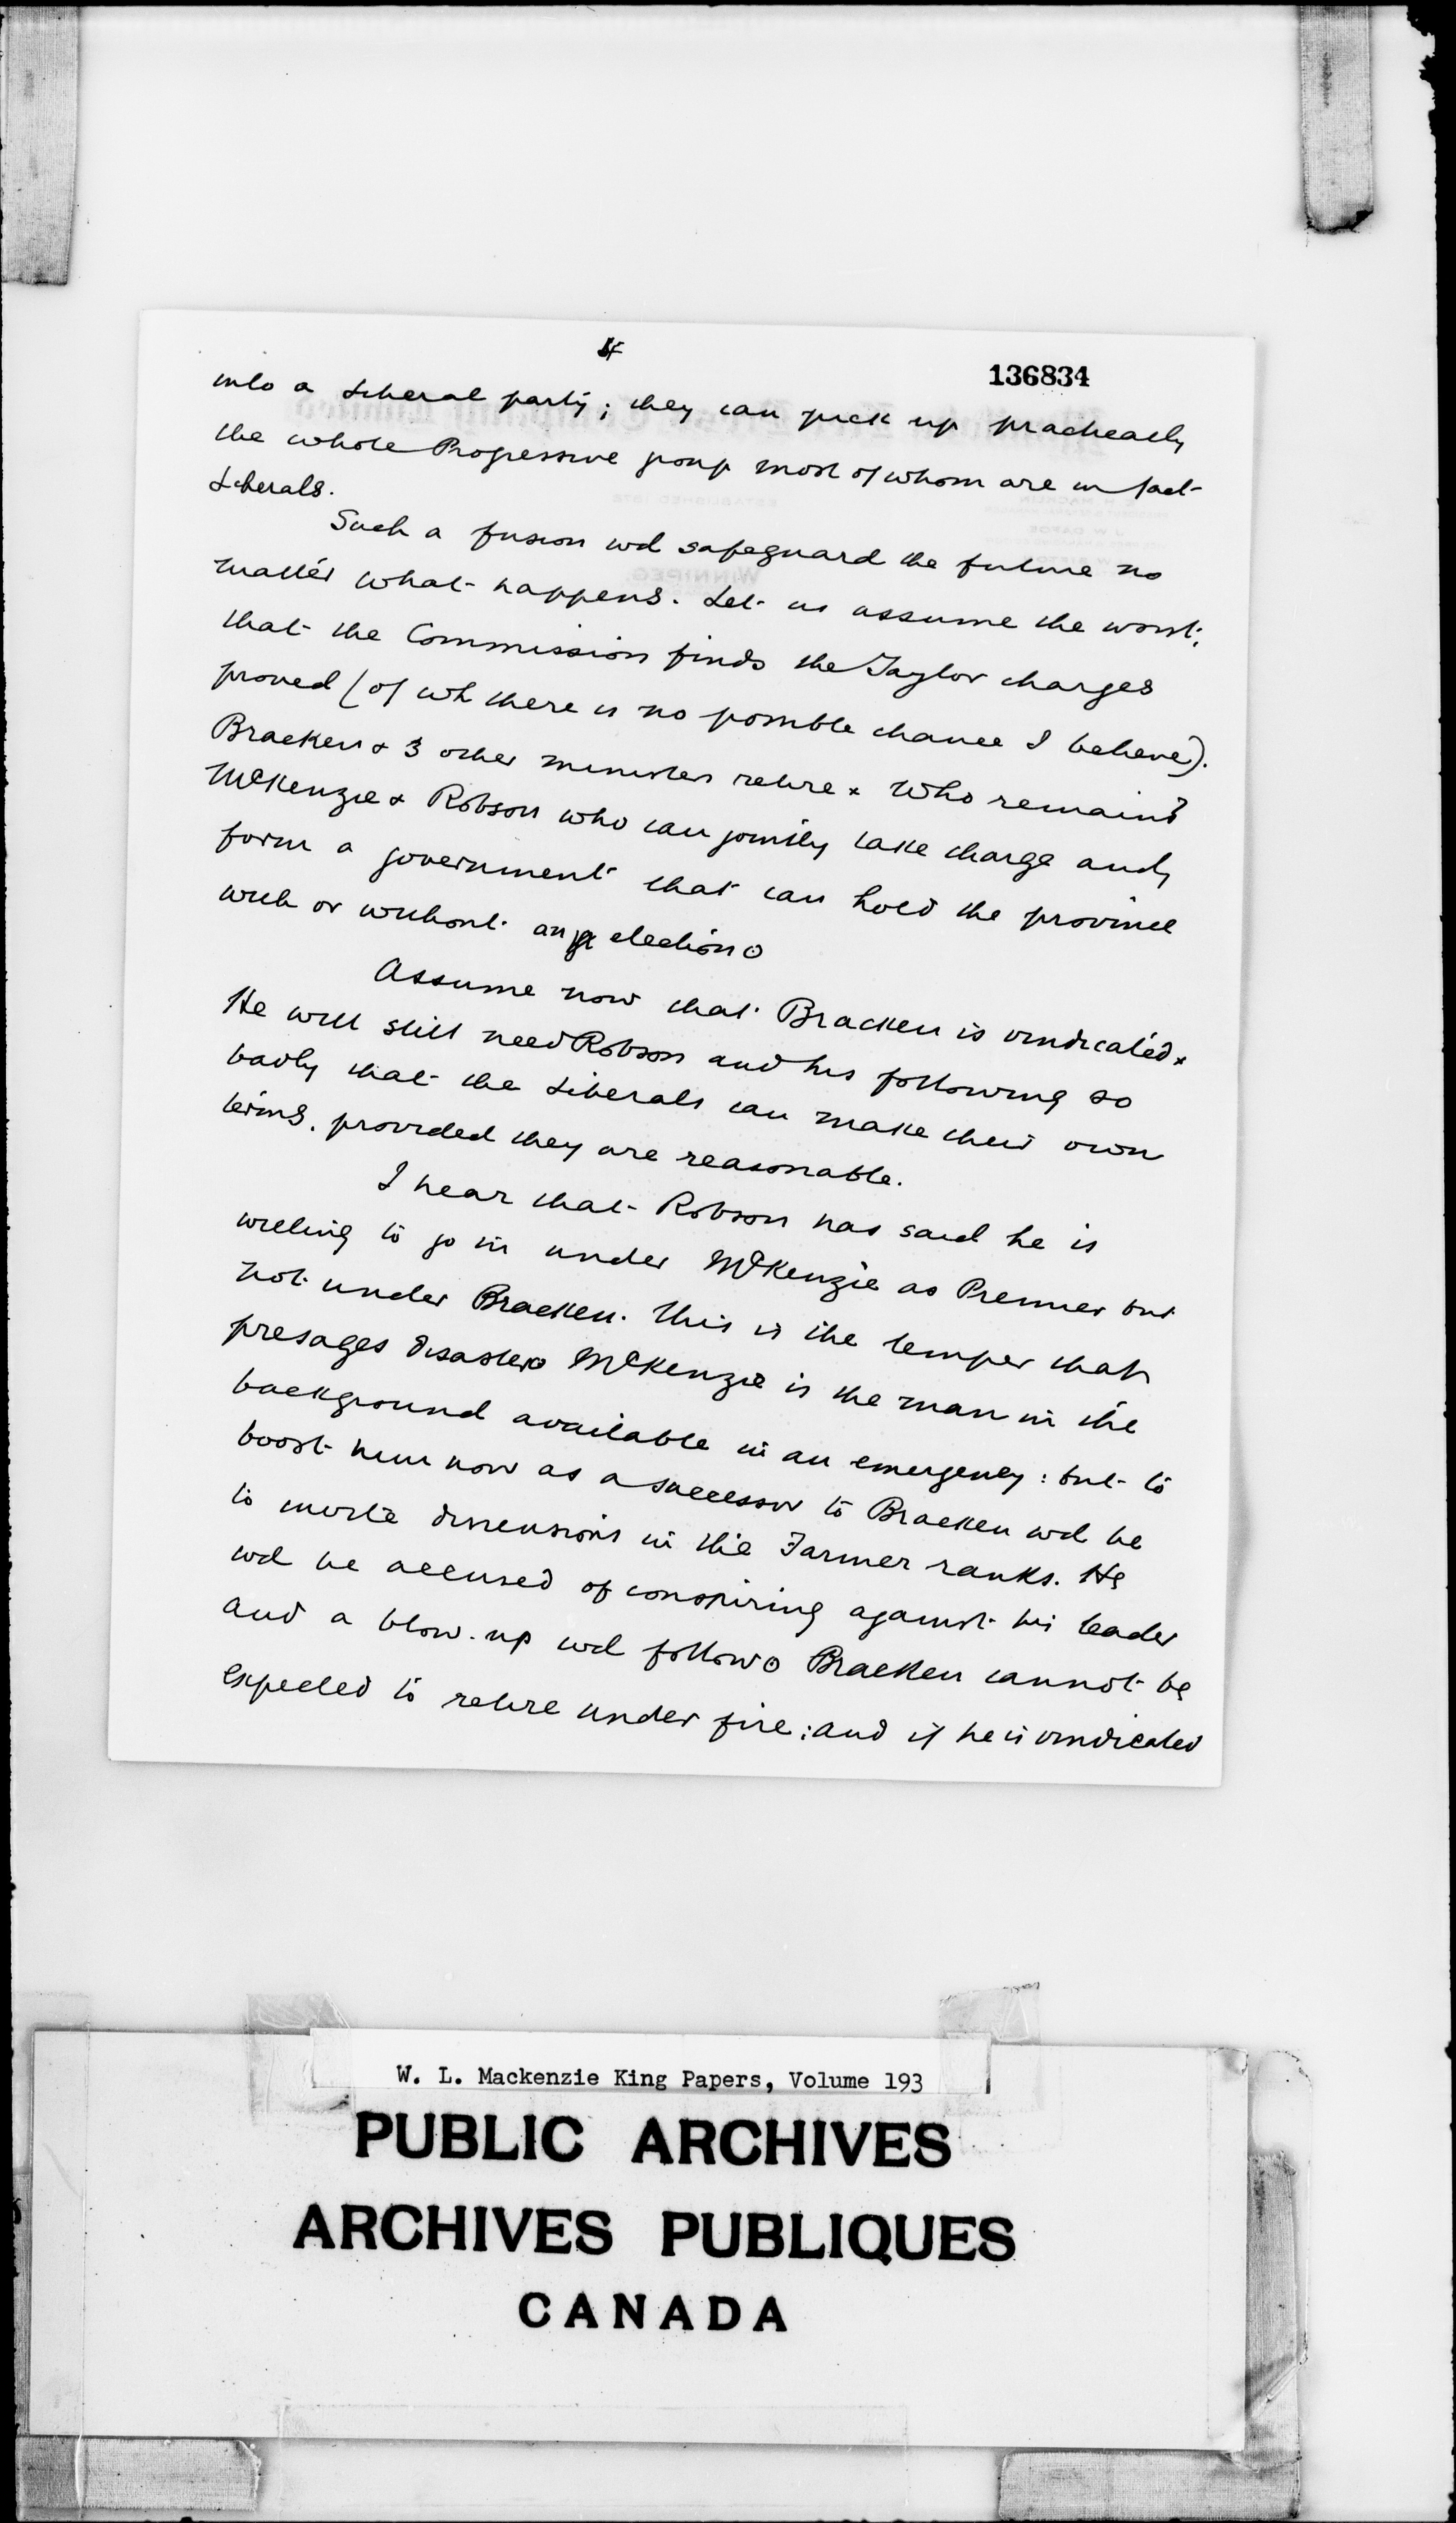 4
136834
into a Liberal party; they can pick up practically
the whole Progressive group most of whom are in fact
Liberals.
Such a fusion wd safeguard the future no
matter what happens. Let us assume the worst:
that the Commission finds the Taylor charges
proved (of wh there is no possible chance I believe).
Bracken & 3 other ministers retire x Who remains?
McKenzie & Robson who can jointly take charge and
form a government that can hold the province
with or without an election.
Assume now that Bracken is vindicated x
He will still need Robson and his following so
badly that the Liberals can make their own
terms, provided they are reasonable.
I hear that Robson has said he is
willing to go in under McKenzie as Premier but
not under Bracken. This is the temper that
presages disaster. McKenzie is the man in the
background available in an emergency: but to
boost him now as a successor to Bracken wd be
to invite dissensions in the Farmer ranks. He
wd be accused of conspiring against his leader
and a blow-up wd follow. Bracken cannot be
expected to retire under fire: and if he is vindicated
W. L. Mackenzie King Papers, Volume 193
PUBLIC ARCHIVES
ARCHIVES PUBLIQUES
CANADA